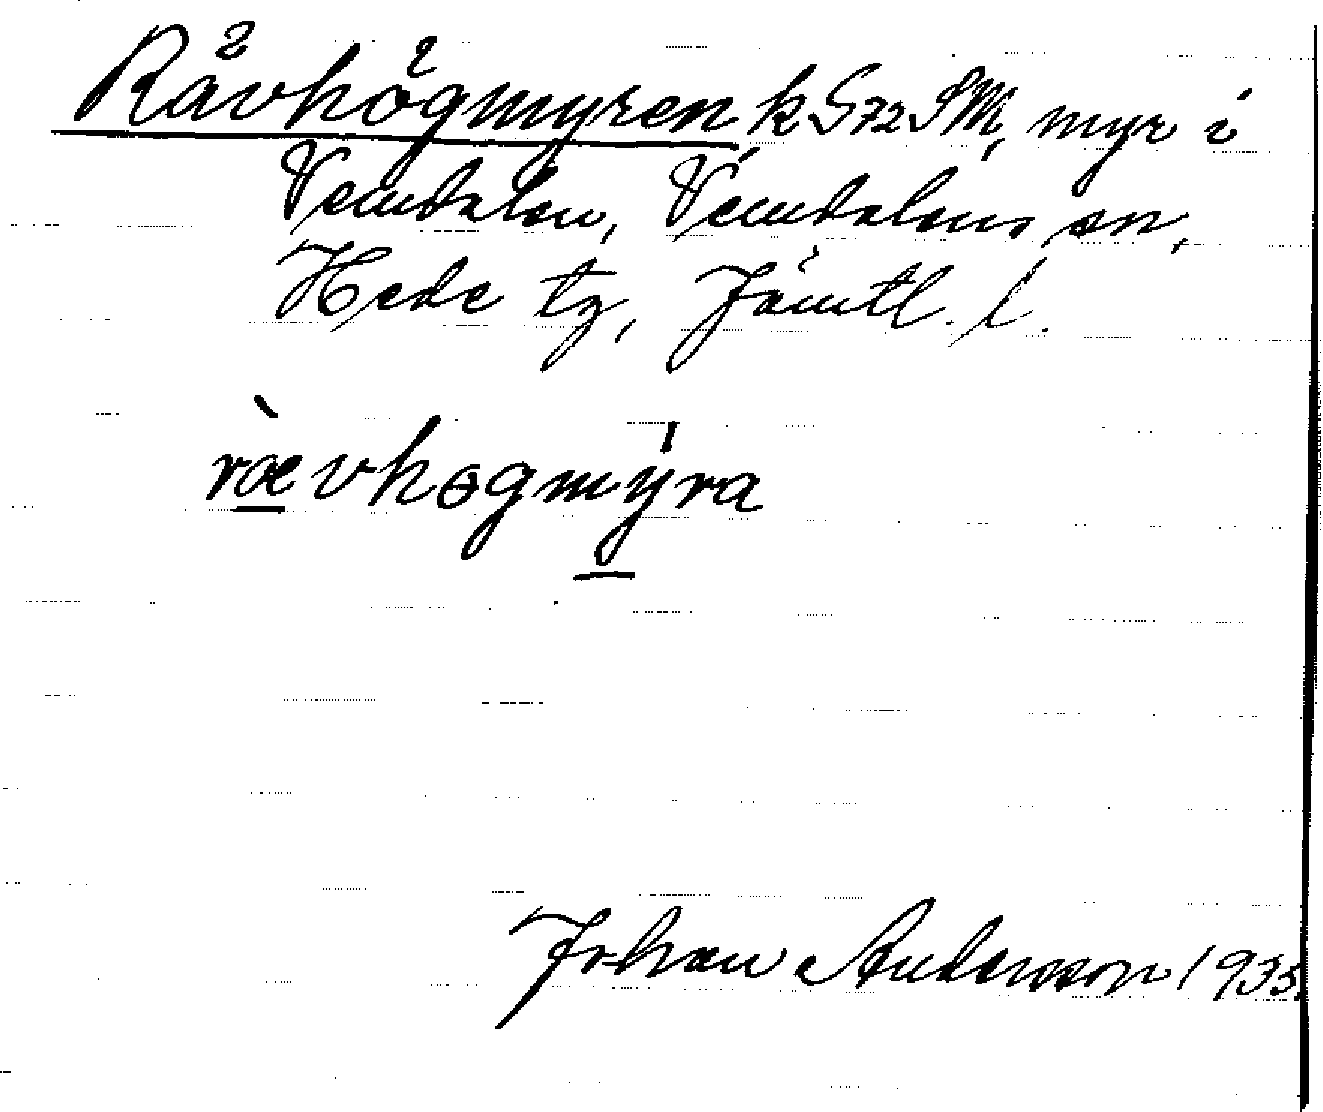 Rävhögmyren, k S72 SM, myr i
Vemdalen, Vemdalens sn,
Hede tg, Jämtl. l.
rævhøgmyra
Johan Andersson 1935.